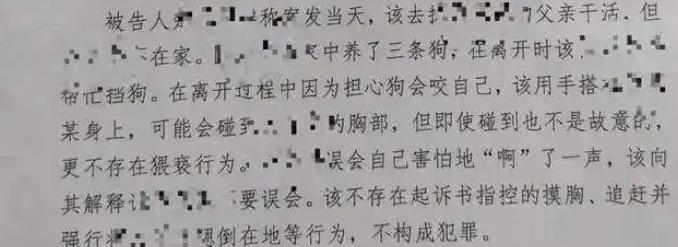 被告人 称案发当天，该去找 父亲干活。但
在家。 家中养了三条狗，在离开时该
帮忙挡狗。在离开过程中因为担心狗会咬自己，该用手搭
某身上，可能会碰到 的胸部，但即使碰到也不是故意的，
更不存在猥亵行为。 误会自己害怕地“啊”了一声，该向
其解释 不要误会。该不存在起诉书指控的摸胸、追赶并
强行 倒在地等行为，不构成犯罪。